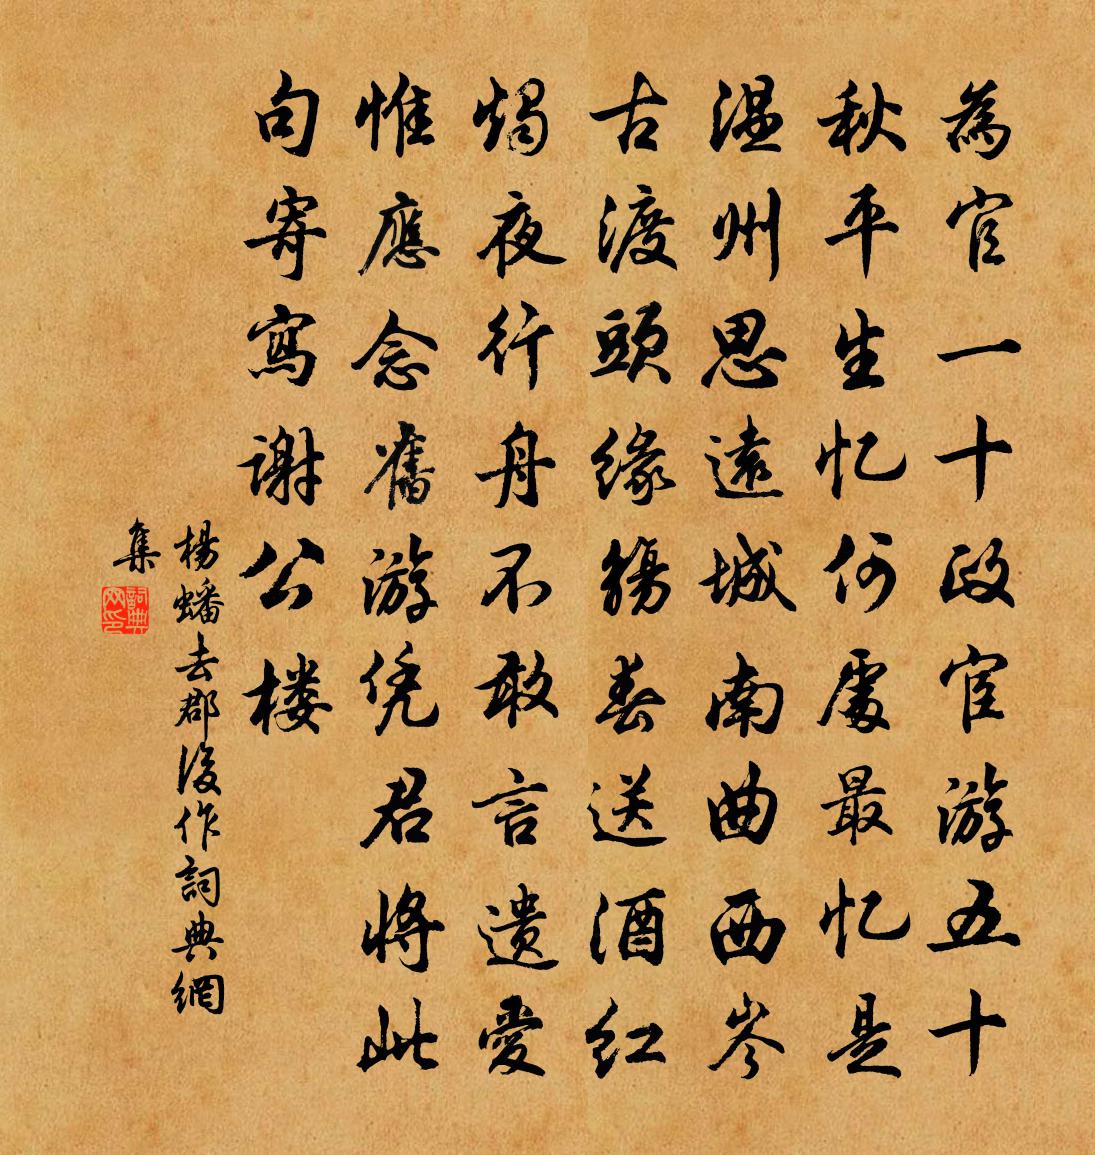 為官一十政宦游五十
秋平生忆何處最忆是
温州思遠城南曲西岑
古渡頭緣觴春送酒红
燭夜行舟不敢言遺愛
惟應念舊游凭君將此
句寄寫謝公楼
楊蟠去郡後作詞典網
集
詞典
网印